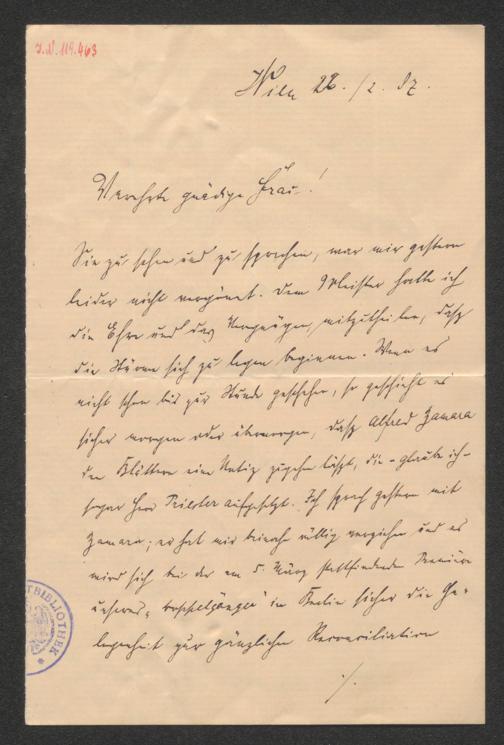 I.N. 119.463
Wien 28./2. 87.
Verehrte gnädige Frau!
Sie zu sehen und zu sprechen, war mir gestern
leider nicht vergönnt. Dem Meister hatte ich
die Ehre und das Vergnügen, mitzutheilen, dass
die Stürme sich zu legen beginnen. Wenn es
nicht schon bis zur Stunde geschehen, so geschieht es
sicher morgen oder übermorgen, dass Alfred Zamara
den Blättern eine Notiz zugehen lässt, die – glaube ich –
sogar Herr Priester aufgesetzt. Ich sprach gestern mit
Zamara; er hat mir beinahe völlig verziehen und es
wird sich bei der am 5. März stattfindenden Premiere
unseres „Doppelgänger" in Berlin sicher die Ge-
legenheit zur gänzlichen Reconciliation
./.
TBIBLIOTHEK